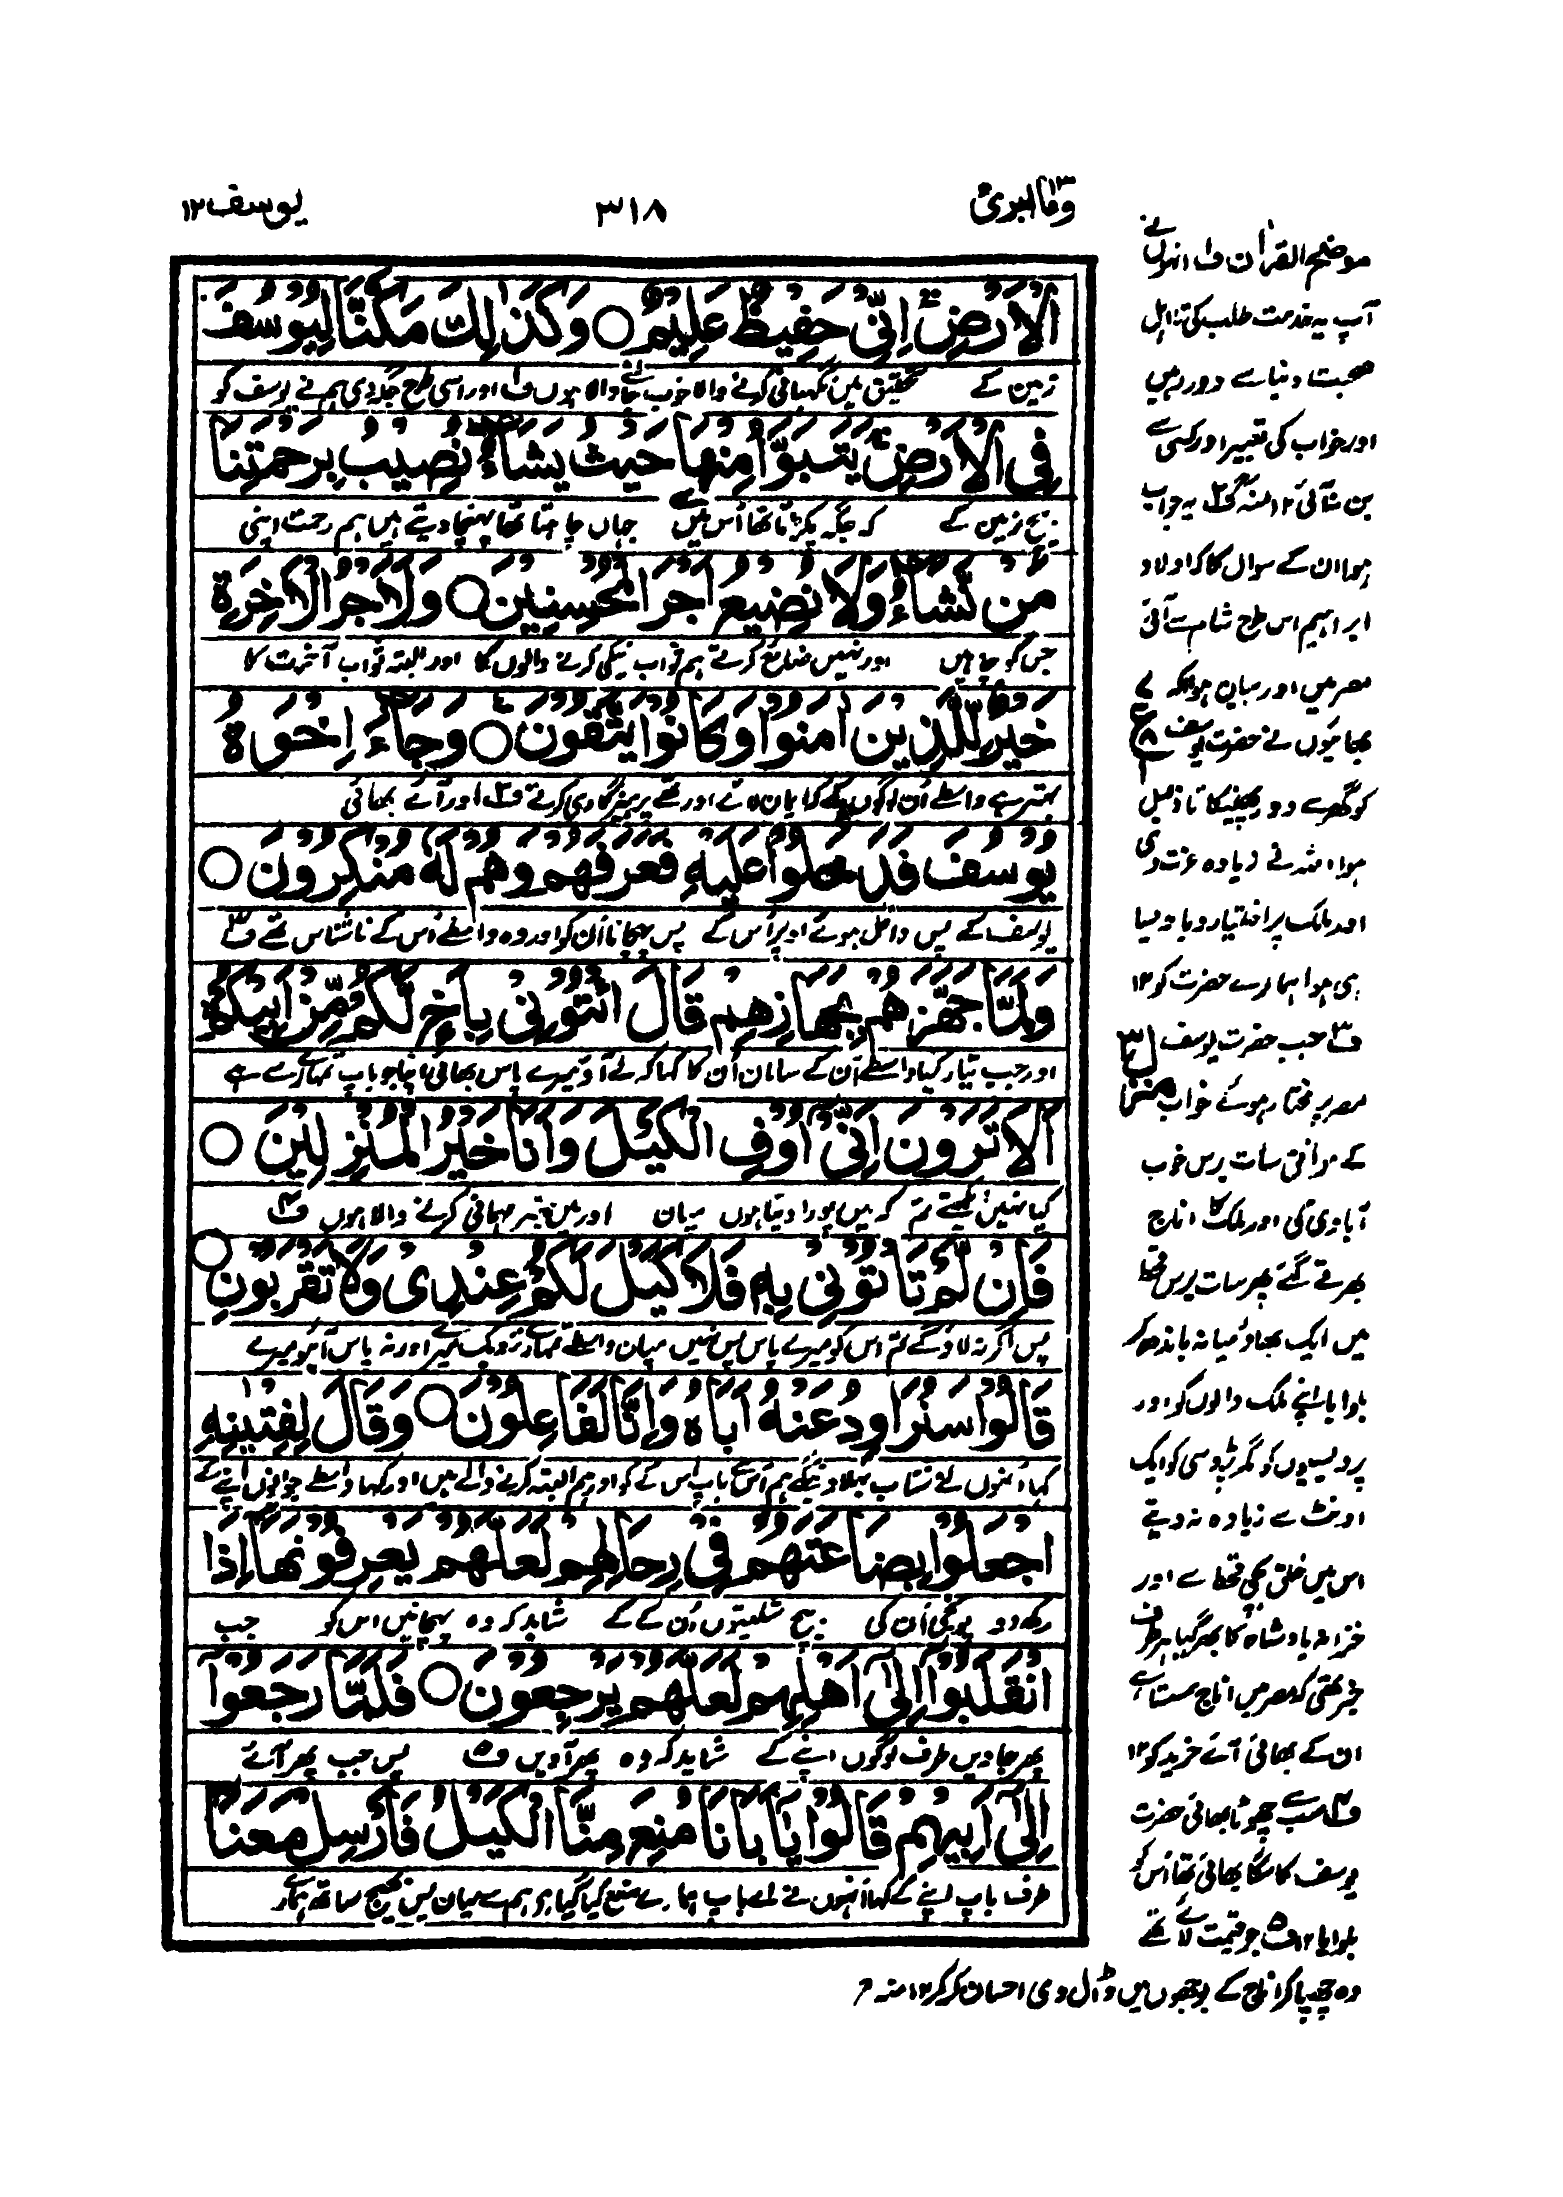 وما ابرئ ١٣
٣١٨
يوسف ١٢
الْاَرْضِ ۚ اِنِّیْ حَفِیْظٌ عَلِیْمٌ ○ وَكَذٰلِكَ مَكَّنَّا لِیُوْسُفَ
زمین کے تحقیق میں نگہبانی کرنے والا خوب جاننے والا ہوں ف۱ اور اسی طرح جگہ دی ہم نے یوسف کو
فِی الْاَرْضِ ۚ یَتَبَوَّاُ مِنْهَا حَیْثُ یَشَآءُ ؕ نُصِیْبُ بِرَحْمَتِنَا
بیچ زمین کے کہ جگہ پکڑتا تھا اُس میں سے جہاں چاہتا تھا پہنچا دیتے ہیں ہم رحمت اپنی
مَنْ نَّشَآءُ وَلَا نُضِیْعُ اَجْرَ الْمُحْسِنِیْنَ ○ وَلَاَجْرُ الْاٰخِرَةِ
جس کو چاہیں اور نہیں ضائع کرتے ہم ثواب نیکی کرنے والوں کا اور البتہ ثواب آخرت کا
خَیْرٌ لِّلَّذِیْنَ اٰمَنُوْا وَكَانُوْا یَتَّقُوْنَ ○ وَجَآءَ اِخْوَةُ
بہتر ہے واسطے اُن لوگوں کے کہ ایمان لائے اور تھے پرہیزگاری کرتے ف۲ اور آئے بھائی
یُوْسُفَ فَدَخَلُوْا عَلَیْهِ فَعَرَفَهُمْ وَهُمْ لَهٗ مُنْكِرُوْنَ ○
یوسف کے پس داخل ہوئے اوپر اُس کے پس پہچانا اُن کو اور وہ واسطے اُس کے ناشناس تھے ف۳
وَلَمَّا جَهَّزَهُمْ بِجَهَازِهِمْ قَالَ ائْتُوْنِیْ بِاَخٍ لَّكُمْ مِّنْ اَبِیْكُمْ
اور جب تیار کیا واسطے اُن کے سامان اُن کا کہا کہ لے آؤ میرے پاس بھائی اپنا جو باپ تمہارے سے ہے
اَلَا تَرَوْنَ اَنِّیْۤ اُوْفِی الْكَیْلَ وَاَنَا خَیْرُ الْمُنْزِلِیْنَ ○
کیا نہیں دیکھتے تم کہ میں پورا دیتا ہوں میان اور میں بہتر مہمانی کرنے والا ہوں ف۴
فَاِنْ لَّمْ تَاْتُوْنِیْ بِهٖ فَلَا كَیْلَ لَكُمْ عِنْدِیْ وَلَا تَقْرَبُوْنِ ○
پس اگر نہ لاؤ گے تم اس کو میرے پاس پس نہیں میان واسطے تمہارے نزدیک میرے اور نہ پاس آئیو میرے
قَالُوْا سَنُرَاوِدُ عَنْهُ اَبَاهُ وَاِنَّا لَفَاعِلُوْنَ ○ وَقَالَ لِفِتْیٰنِهِ
کہا اُنہوں نے شتاب بہلاویں گے ہم اُس سے باپ اُس کے کو اور ہم البتہ کرنے والے ہیں اور کہا واسطے جوانوں اپنے کے
اجْعَلُوْا بِضَاعَتَهُمْ فِیْ رِحَالِهِمْ لَعَلَّهُمْ یَعْرِفُوْنَهَاۤ اِذَا
رکھ دو پونجی اُن کی بیچ شلیتوں اُن کے کے شاید کہ وہ پہچانیں اس کو جب
انْقَلَبُوْۤا اِلٰۤی اَهْلِهِمْ لَعَلَّهُمْ یَرْجِعُوْنَ ○ فَلَمَّا رَجَعُوْۤا
پھر جاویں طرف لوگوں اپنے کے شاید کہ وہ پھر آویں ف۵ پس جب پھر آئے
اِلٰۤی اَبِیْهِمْ قَالُوْا یٰۤاَبَانَا مُنِعَ مِنَّا الْكَیْلُ فَاَرْسِلْ مَعَنَاۤ
طرف باپ اپنے کے کہا اُنہوں نے اے باپ ہمارے منع کیا گیا ہے ہم سے میان پس بھیج ساتھ ہمارے
موضح القرآن ف۱ انہوں نے
آپ یہ خدمت طلب کی تا اہل
صحبت دنیا سے دور رہیں
اور خواب کی تعبیر اور کسی سے
بن نہ آتی ١٢ منہ ف۲ یہ جواب
ہوا ان کے سوال کا کہ اولاد
ابراہیم اس طرح شام سے آئی
مصر میں اور بیان ہوا کہ
بھائیوں نے حضرت یوسف
کو گھر سے دور پھینکا تا ذلیل
ہوا اللہ نے زیادہ عزت دی
اور ملک پر اختیار دیا ویسا
ہی ہوا ہمارے حضرت کو ١٢
ف۳ جب حضرت یوسف
مصر پر مختار ہوئے خواب
کے موافق سات برس خوب
آبادی کی اور ملک کا اناج
بھرتے گئے پھر سات برس قحط
میں ایک بھاؤ میانہ باندھ کر
بکوایا اپنے ملک والوں کو اور
پردیسیوں کو مگر پردیسی کو ایک
اونٹ سے زیادہ نہ دیتے
اس میں خلق بچی قحط سے اور
خزانہ بادشاہ کا بھر گیا ہر طرف
خبر تھی کہ مصر میں اناج سستا ہے
ان کے بھائی آئے خرید کو ١٢
ف۴ سب سے چھوٹا بھائی حضرت
یوسف کا سگا بھائی تھا اُس کو
بلوایا ١٢ ف۵ جو قیمت لائے تھے
وہ چھپا کر اناج کے بوجھوں میں ڈال دی احسان کر کر ١٢ منہ